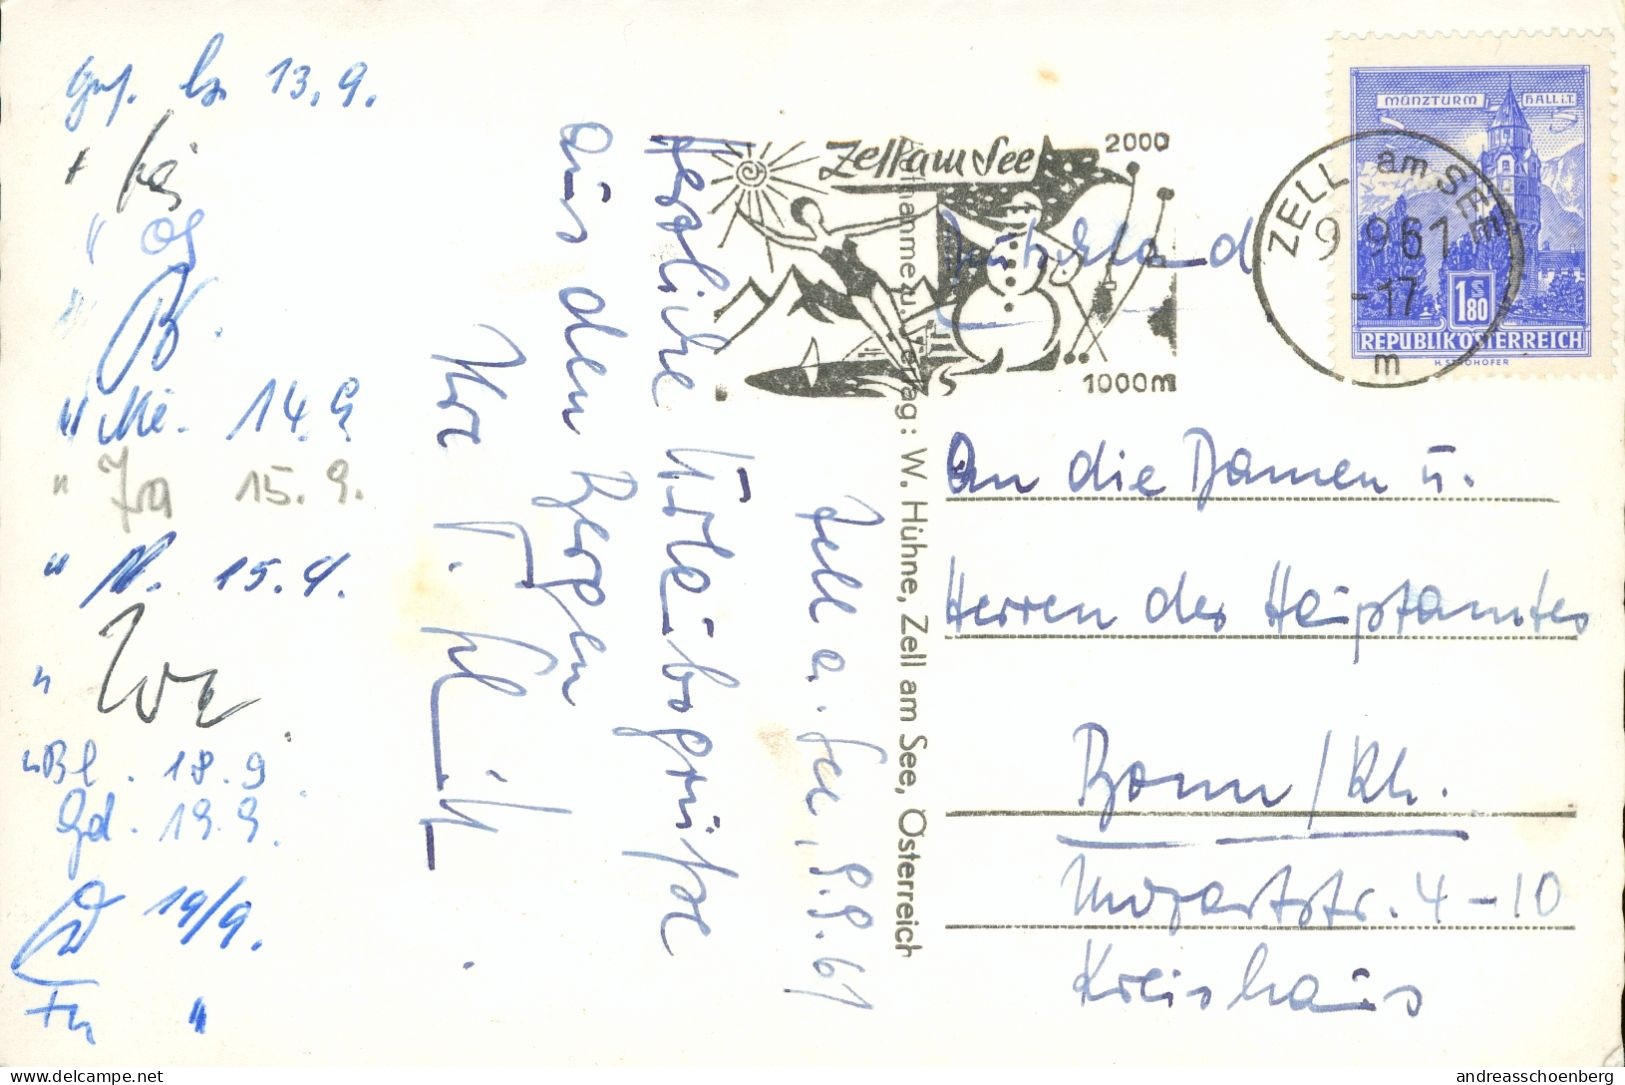 Zell a. See, 9.9.61
Herzliche Urlaubsgrüße
aus den Bergen
Ihr
13.9.
14.9.
" Za 15.9.
" N. 15.9.
" Bl. 18.9
Gd. 19.9.
19/9.
Fn "
Zell am See
2000
1000m
ZELL am SEE
9.9.61-17
m
MÜNZTURM HALL i.T.
1 S 80
REPUBLIK ÖSTERREICH
H. STROHOFER
Deutschland
An die Damen u.
Herren des Hauptamtes
Bonn/Rh.
Mozartstr. 4-10
Kreishaus
Verlag: W. Hühne, Zell am See, Österreich
Delcampe.net
andreasschoenberg